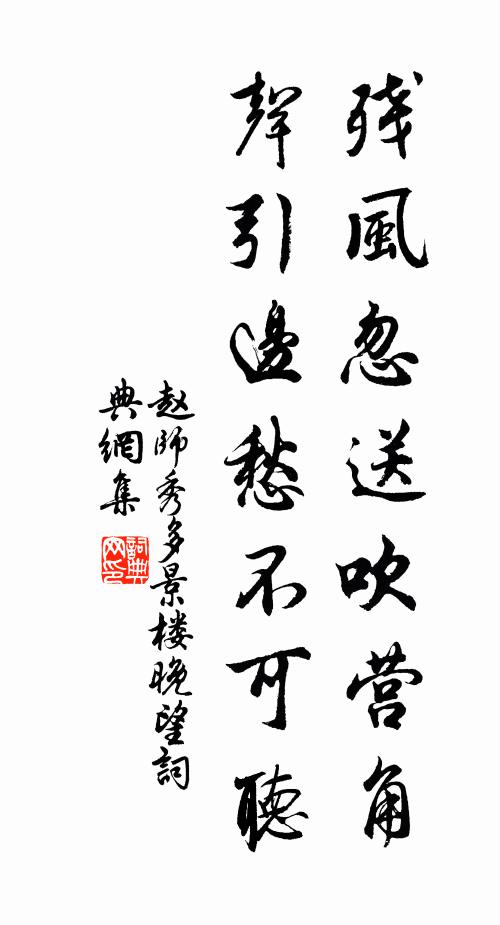 残風忽送吹营角
聲引邊愁不可聽
赵師秀多景楼晚望詞
典網集
詞典
网印